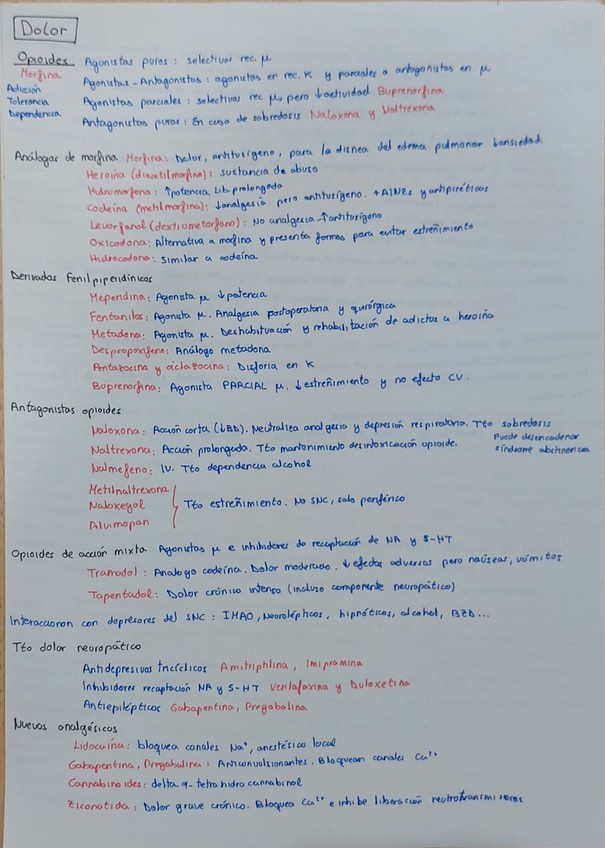 Dolor
Opioides Agonistas puros: selectivos rec. μ
Morfina Agonistas-Antagonistas: agonistas en rec. K y parciales o antagonistas en μ
Adicción
Tolerancia Agonistas parciales: selectivos rec μ, pero ↓actividad Buprenorfina
Dependencia Antagonistas puros: En caso de sobredosis Naloxona y Naltrexona
Análogos de morfina Morfina: Dolor, antitusígeno, para la disnea del edema pulmonar ↓ansiedad
Heroína (diacetilmorfina): sustancia de abuso
Hidromorfona: ↑potencia, Lib. prolongada
Codeína (metilmorfina): ↓analgesia pero antitusígeno. +AINEs y antipiréticos
Levorfanol (dextrometorfano): No analgesia -↑antitusígeno
Oxicodona: Alternativa a morfina y presenta formas para evitar estreñimiento
Hidrocodona: similar a codeína
Derivados Fenilpiperidínicos
Meperidina: Agonista μ ↓potencia
Fentanilos: Agonista μ. Analgesia postoperatoria y quirúrgica
Metadona: Agonista μ. Deshabituación y rehabilitación de adictos a heroína
Despropoxifeno: Análogo metadona
Pentazocina y ciclazocina: Disforia en K
Buprenorfina: Agonista PARCIAL μ. ↓estreñimiento y no efecto CV
Antagonistas opioides
Naloxona: Acción corta (↓BD). Neutraliza analgesia y depresión respiratoria. Tto sobredosis
Puede desencadenar
Naltrexona: Acción prolongada. Tto mantenimiento desintoxicación opioide. síndrome abstinencia
Nalmefeno: IV. Tto dependencia alcohol
Metilnaltrexona
Naloxegol Tto estreñimiento. No SNC, solo periférico
Alvimopan
Opioides de acción mixta Agonistas μ e inhibidores de recaptación de NA y 5-HT
Tramadol: Análogo codeína. Dolor moderado. ↓ efectos adversos pero náuseas, vómitos
Tapentadol: Dolor crónico intenso (incluso componente neuropático)
Interaccionan con depresores del SNC: IMAO, Neurolépticos, hipnóticos, alcohol, BZD...
Tto dolor neuropático
Antidepresivos tricíclicos Amitriptilina, Imipramina
Inhibidores recaptación NA y 5-HT Venlafaxina y Duloxetina
Antiepilépticos Gabapentina, Pregabalina
Nuevos analgésicos
Lidocaína: bloquea canales Na⁺, anestésico local
Gabapentina, Pregabalina: Anticonvulsionantes. Bloquean canales Ca²⁺
Cannabinoides: delta 9-tetrahidrocannabinol
Ziconotida: Dolor grave crónico. Bloquea Ca²⁺ e inhibe liberación neurotransmisores